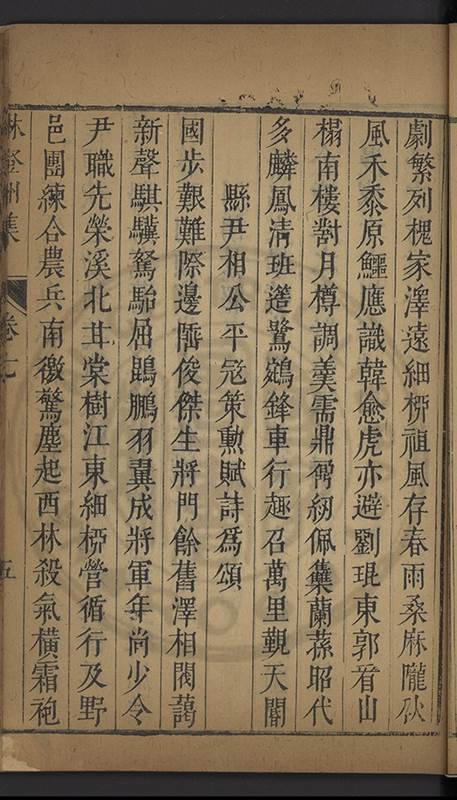 劇繁列槐家澤遠細桞祖風存春雨桑麻隴秋
風禾黍原鱷應識韓愈虎亦避劉琨東郭看山
榻南樓對月樽調羮需鼎鼐紉佩集蘭蓀昭代
多麟鳳清班邆鷺鵷鋒車行趣召萬里覲天閽
縣尹相公平冦策勲賦詩爲頌
國步艱難際邊陲俊傑生將門餘舊澤相閥藹
新聲騏驥駑駘屈鵾鵬羽翼成將軍年尚少令
尹職先榮溪北甘棠樹江東細桞營循行及野
邑團練合農兵南徼驚塵起西林殺氣橫霜袍
林登州集
卷七
五